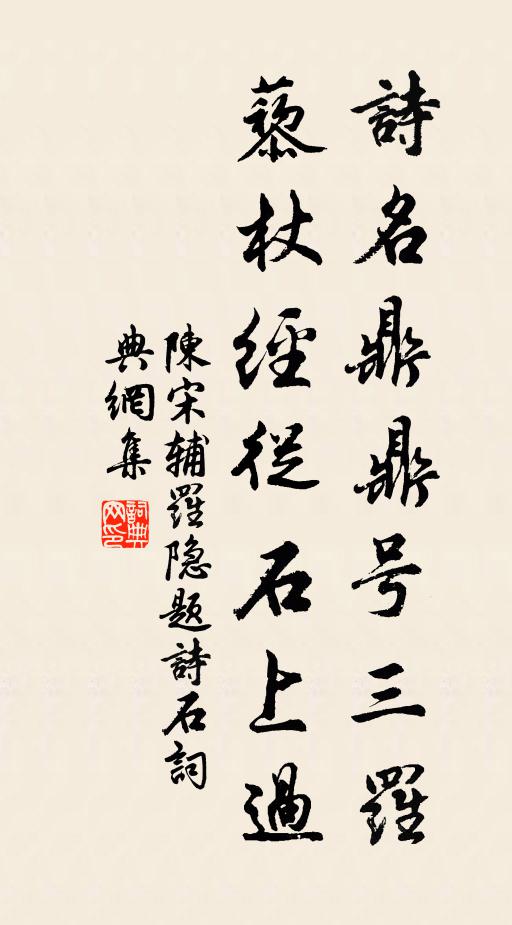 詩名鼎鼎号三羅
藜杖經從石上過
陳宋辅羅隐题詩石詞
典網集
詞典网印